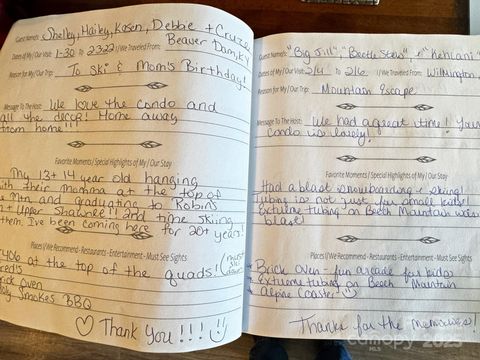 Guest Name/s: Shelby, Hailey, Kasen, Debbie + Cruze
Dates of My / Our Visit: 1-30 to 2322 I/We Traveled From: Beaver Dam, KY
Reason for My / Our Trip: To Ski & Mom's Birthday!
Message To The Host: We love the condo and
all the decor! Home away
from home!!!
Favorite Moments / Special Highlights of My / Our Stay
My 13 + 14 year old hanging
with their momma at the top of
the Mtn and graduating to Robins
+ Upper Shawnee!! 2nd time skiing
them. I've been coming here for 20+ years!
Place/s We Recommend - Restaurants - Entertainment - Must See Sights
at the top of the quads! (must ski down)
Fred's
Brick oven
Holy Smokes BBQ
Thank you!!!
Guest Name/s: "Big Jill", "Beetle Stew" & "Kehlani"
Dates of My / Our Visit: 2/4 to 2/6 I / We Traveled From: Wilmington,
Reason for My / Our Trip: Mountain Escape
Message To The Host: We had a great time! Your
condo is lovely!
Favorite Moments / Special Highlights of My / Our Stay
Had a blast snowboarding & skiing!
Tubing is not just for small kids!
Extreme tubing on Beech Mountain was a
blast!
Place/s We Recommend - Restaurants - Entertainment - Must See Sights
Brick oven - fun arcade for kids
Extreme tubing on Beech Mountain
Alpine Coaster
Thanks for the memories!
canopy 2025
MLS